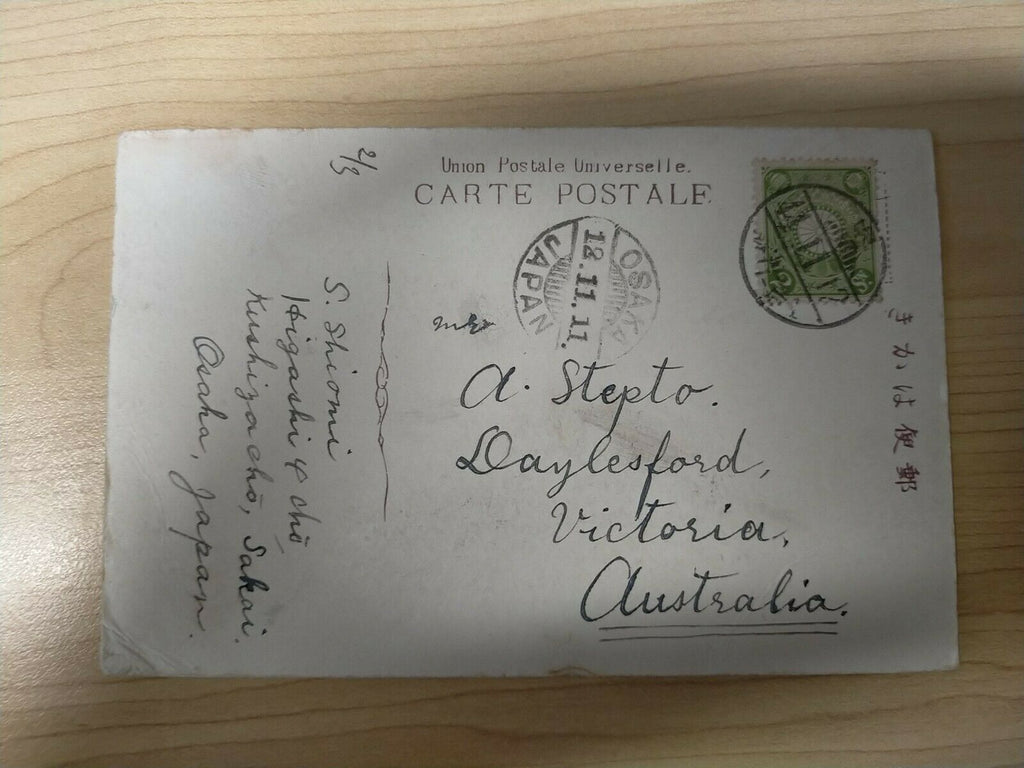 Union Postale Universelle.
CARTE POSTALE
OSAKA
12.11.11
JAPAN
2/3
Mr
A. Stepto.
Daylesford,
Victoria,
Australia.
S. Shiomi
Higashi 4 chō
Kushiyachō, Sakai.
Osaka, Japan.
きかは便郵